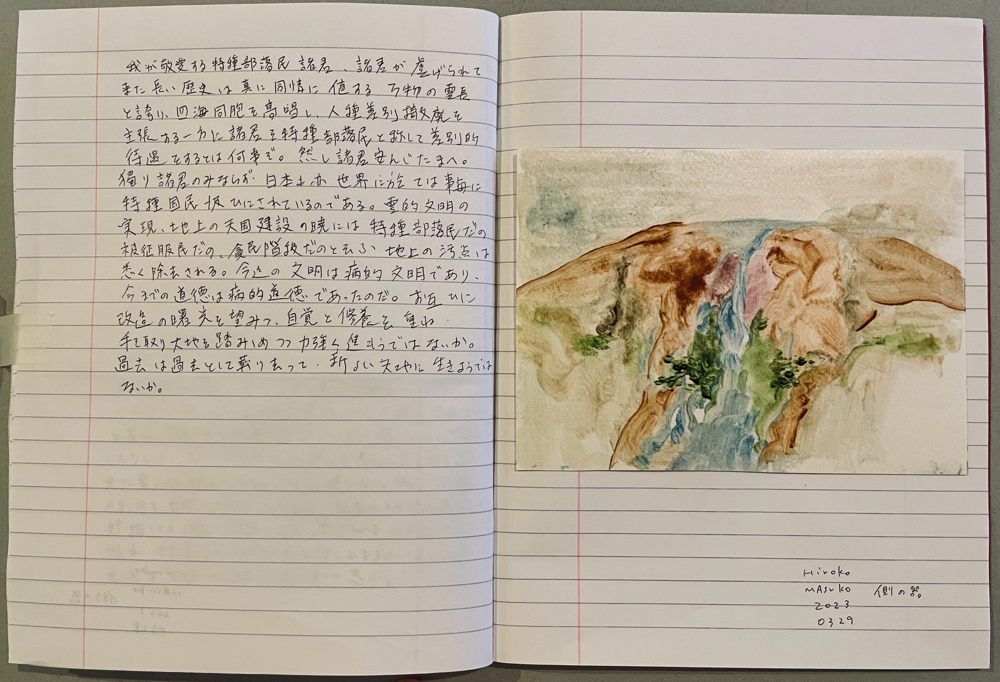 我が敬愛する特種部落民諸君、諸君が虐げられて
きた長い歴史は真に同情に値する 万物の霊長
と誇り、四海同胞を高唱し、人種差別撤廃を
主張する一方に諸君を特種部落民と称して差別的
待遇をするとは何事ぞ。然し諸君安んじたまへ。
獨り諸君のみならず 日本も亦 世界に於ては事毎に
特種国民扱ひにされているのである。霊的文明の
実現、地上の天国建設の暁には特種部落民だの
被征服民だの、貧民階段だのと云ふ地上の汚点は
悉く除去される。今迄の文明は病的文明であり、
今までの道徳は病的道徳であったのだ。お互ひに
改造の曙光を望みつ、自覚と修養を重ね
手を取り大地を踏みしめつつ力強く進もうではないか。
過去は過去として葬り去って、新しい
生きようでは
ないか。
Hiroko
MASUKO 側の器。
2023
0329